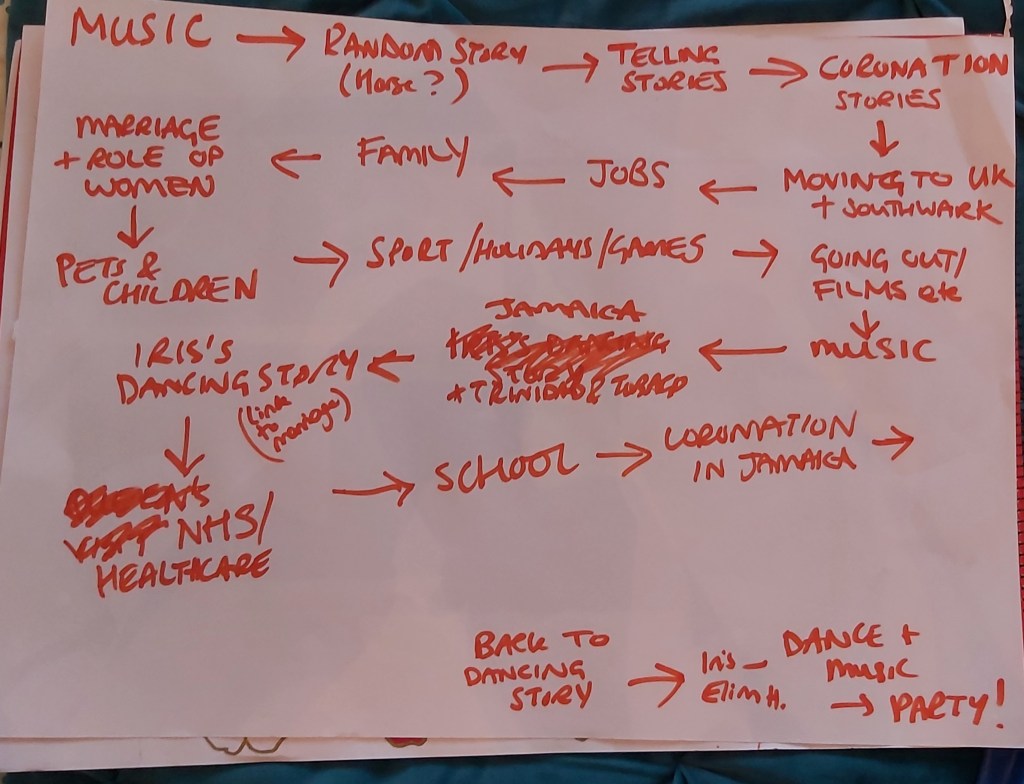 MUSIC → RANDOM STORY → TELLING → CORONATION
(Horse?) STORIES STORIES
↓
MARRIAGE ← FAMILY ← JOBS ← MOVING TO UK
+ ROLE OF + SOUTHWARK
WOMEN
↓
PETS & → SPORT/HOLIDAYS/GAMES → GOING OUT/
CHILDREN FILMS etc
↓
JAMAICA
IRIS'S ← ← MUSIC
DANCING STORY + TRINIDAD & TOBAGO
(link
to
marriage)
↓
→ SCHOOL → CORONATION →
IN JAMAICA
NHS/
HEALTHCARE
BACK TO → Iris – DANCE +
DANCING Elim H. MUSIC
STORY → PARTY!